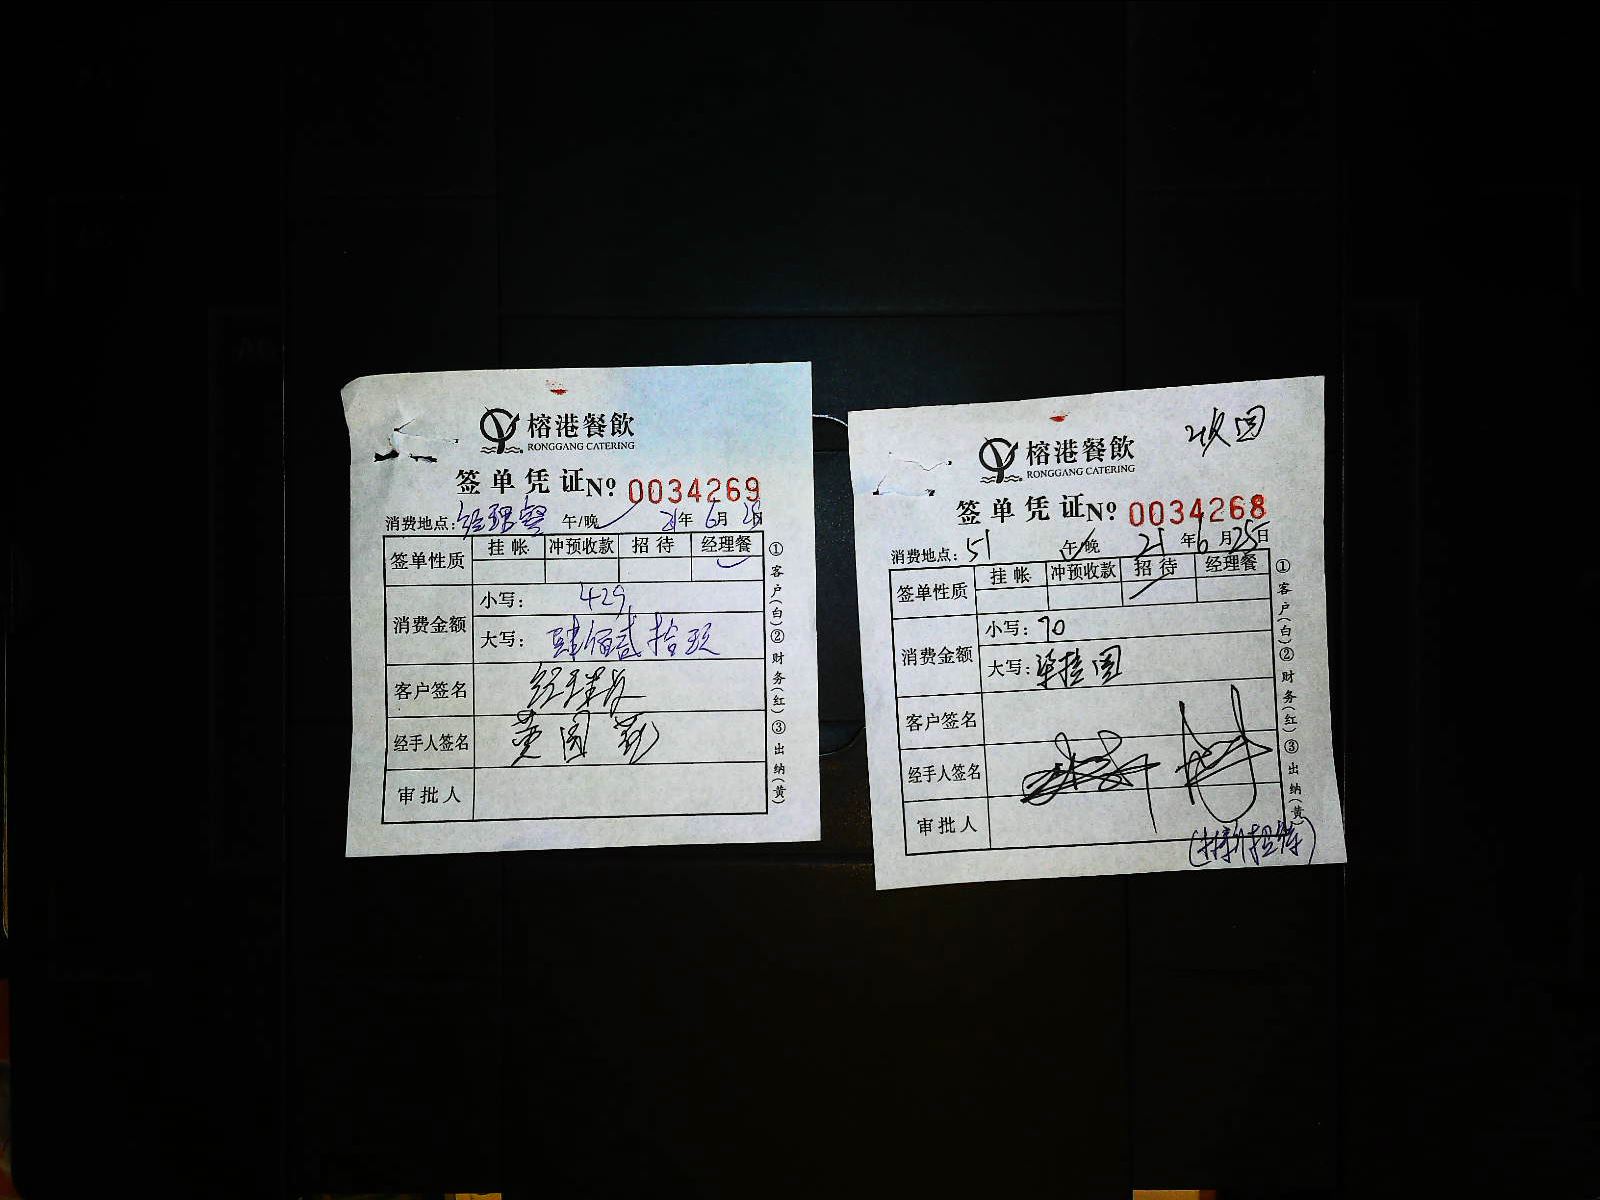 榕港餐飲
RONGGANG CATERING
签单凭证 Nº 0034269
消费地点: 经理餐 午/晚 21年 6月 25日
签单性质 挂帐 冲预收款 招待 经理餐
消费金额 小写: 429
大写: 肆佰贰拾玖
客户签名 经理餐
经手人签名
审批人
①客户(白)②财务(红)③出纳(黄)
收回
榕港餐飲
RONGGANG CATERING
签单凭证 Nº 0034268
消费地点: 51 午/晚 21年 6月 25日
签单性质 挂帐 冲预收款 招待 经理餐
消费金额 小写: 70
大写: 柒拾圆
客户签名
经手人签名
审批人
①客户(白)②财务(红)③出纳(黄)